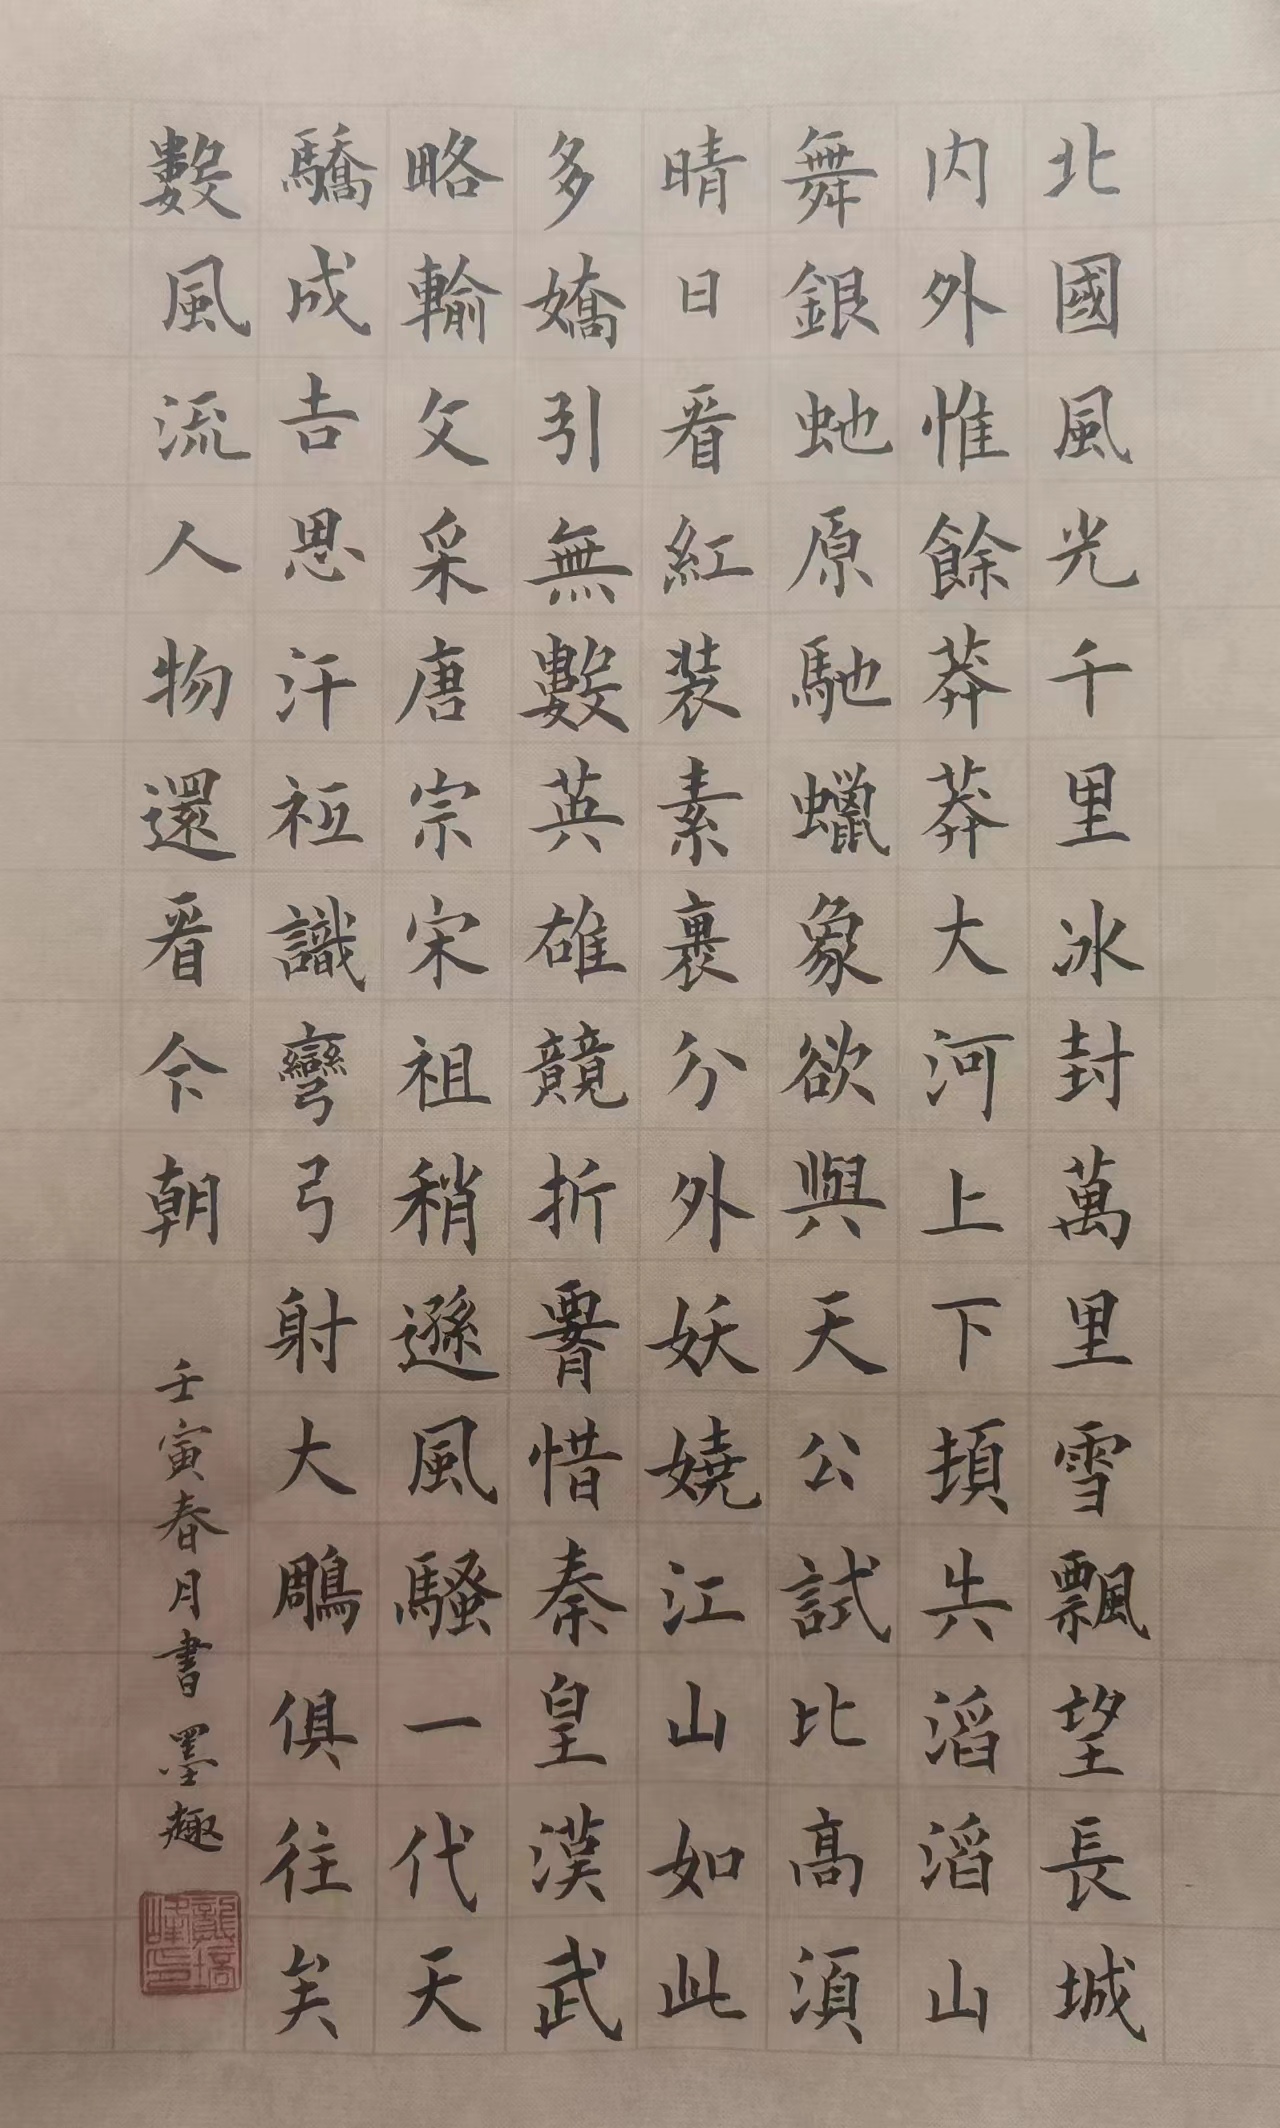 北國風光千里冰封萬里雪飄望長城
内外惟餘莽莽大河上下頓失滔滔山
舞銀虵原馳蠟象欲與天公試比高須
晴日看紅裝素裹分外妖嬈江山如此
多嬌引無數英雄競折腰惜秦皇漢武
略輸文采唐宗宋祖稍遜風騷一代天
驕成吉思汗祗識彎弓射大鵰俱往矣
數風流人物還看今朝
壬寅春月書墨趣